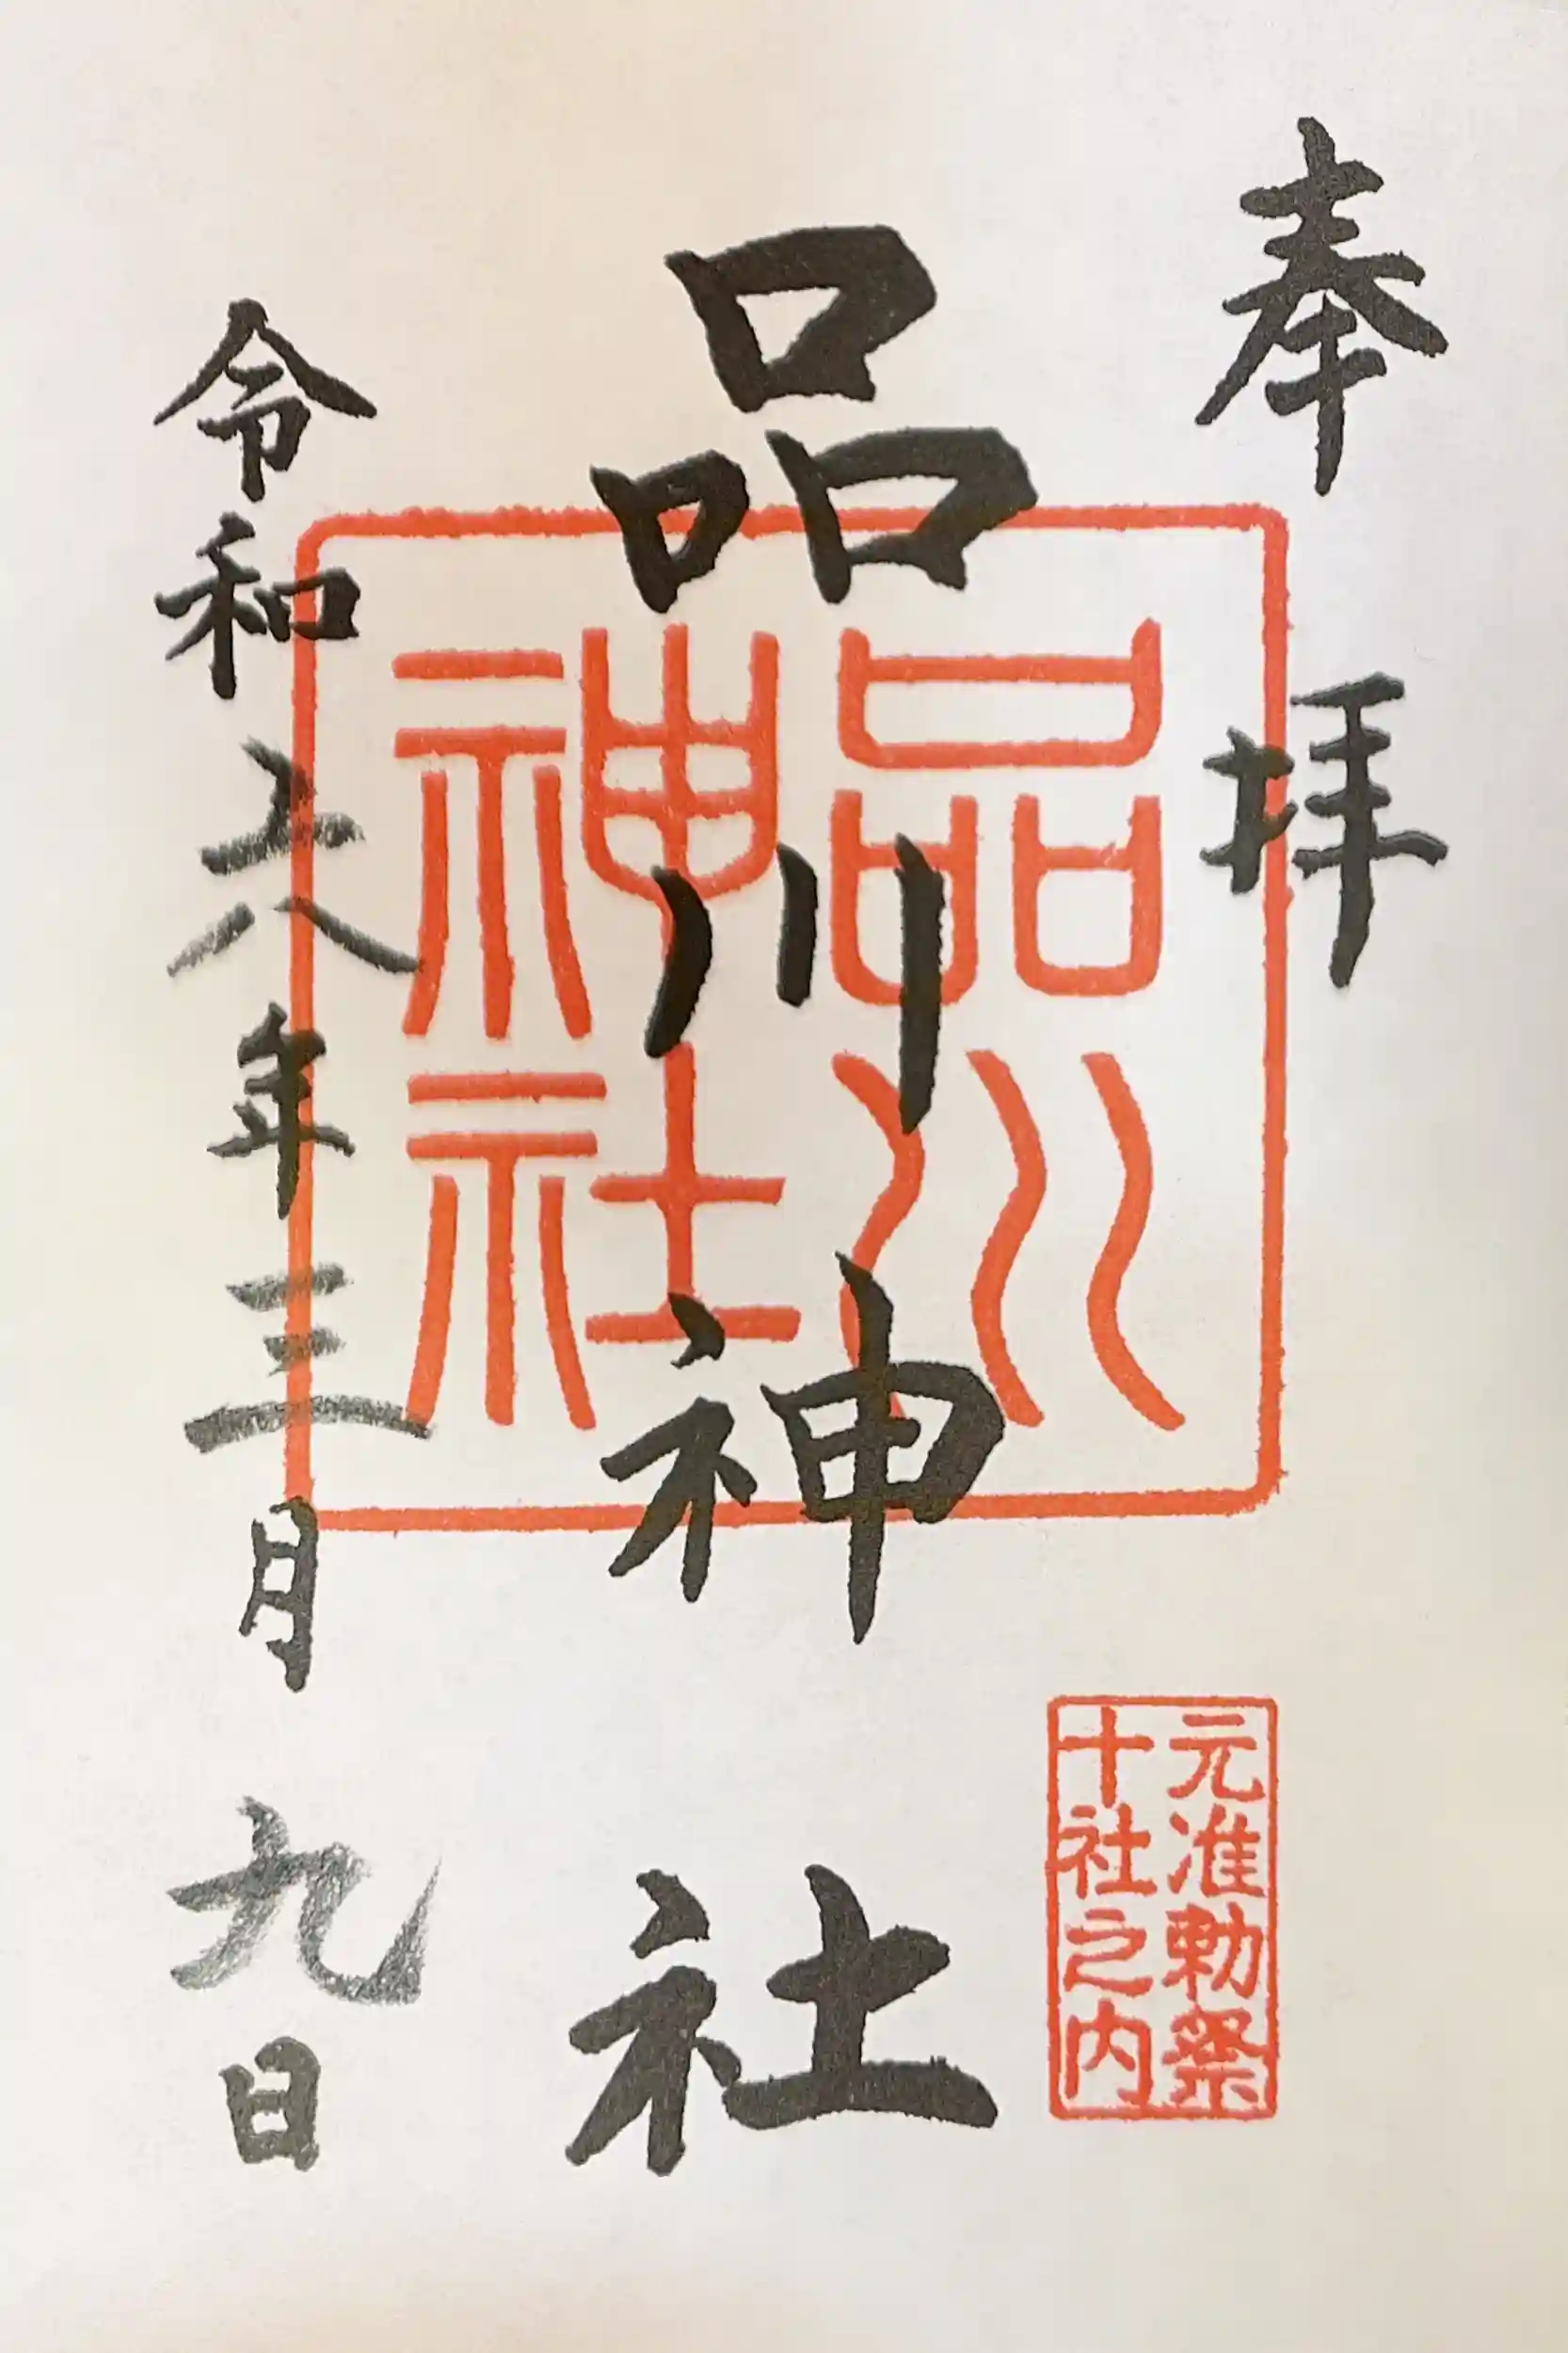 奉拝
品川神社
品川
神社
元准勅祭
十社之内
令和六年三月九日